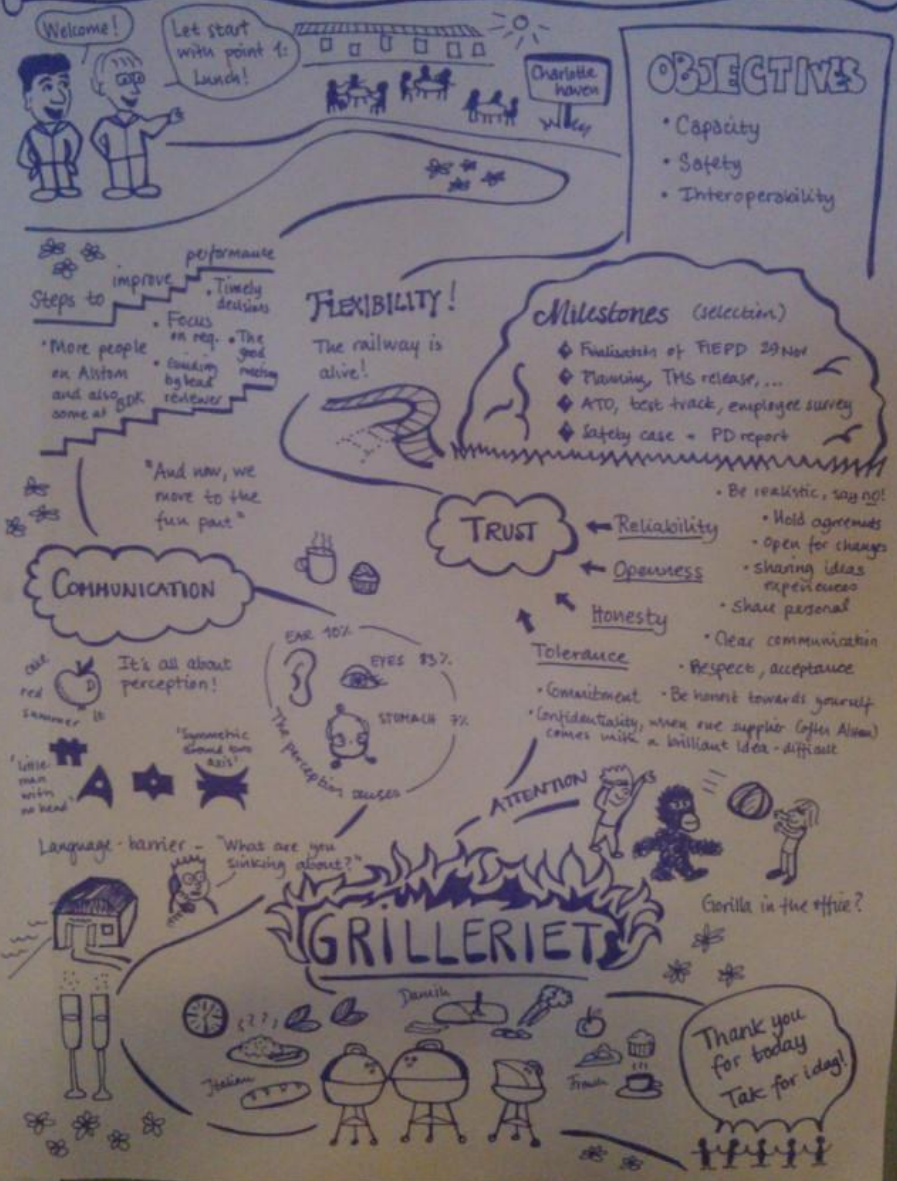 Welcome!
Let start
with point 1:
Lunch!
Charlotte
haven
OBJECTIVES
• Capacity
• Safety
• Interoperability
Steps to improve performance
• More people
on Alstom
and also
some at BDK
• Focus
on req.
• Guiding
by lead
reviewer
• Timely
decisions
• The
good
meeting
FLEXIBILITY!
The railway is
alive!
Milestones (selection)
Finalisation of FIEPD 29 Nov
Planning, TMS release, ...
ATO, test track, employee survey
Safety case + PD report
"And now, we
move to the
fun part"
TRUST
Reliability
Openness
Honesty
Tolerance
• Be realistic, say no!
• Hold agreemets
• Open for changes
• sharing ideas
experiences
• Share personal
• Clear communication
• Respect, acceptance
• Commitment • Be honest towards yourself
• Confidentiality, when one supplier (after Alstom)
comes with a brilliant idea - difficult
COMMUNICATION
It's all about
perception!
red
summer
EAR 10%
EYES 83%
STOMACH 7%
The perception
"little
man
with
no head"
"Symmetric
around two
axis"
ATTENTION
Language-barrier - "What are you
sinking about?"
Gorilla in the office?
GRILLERIET
Danish
Italian
French
Thank you
for today
Tak for idag!